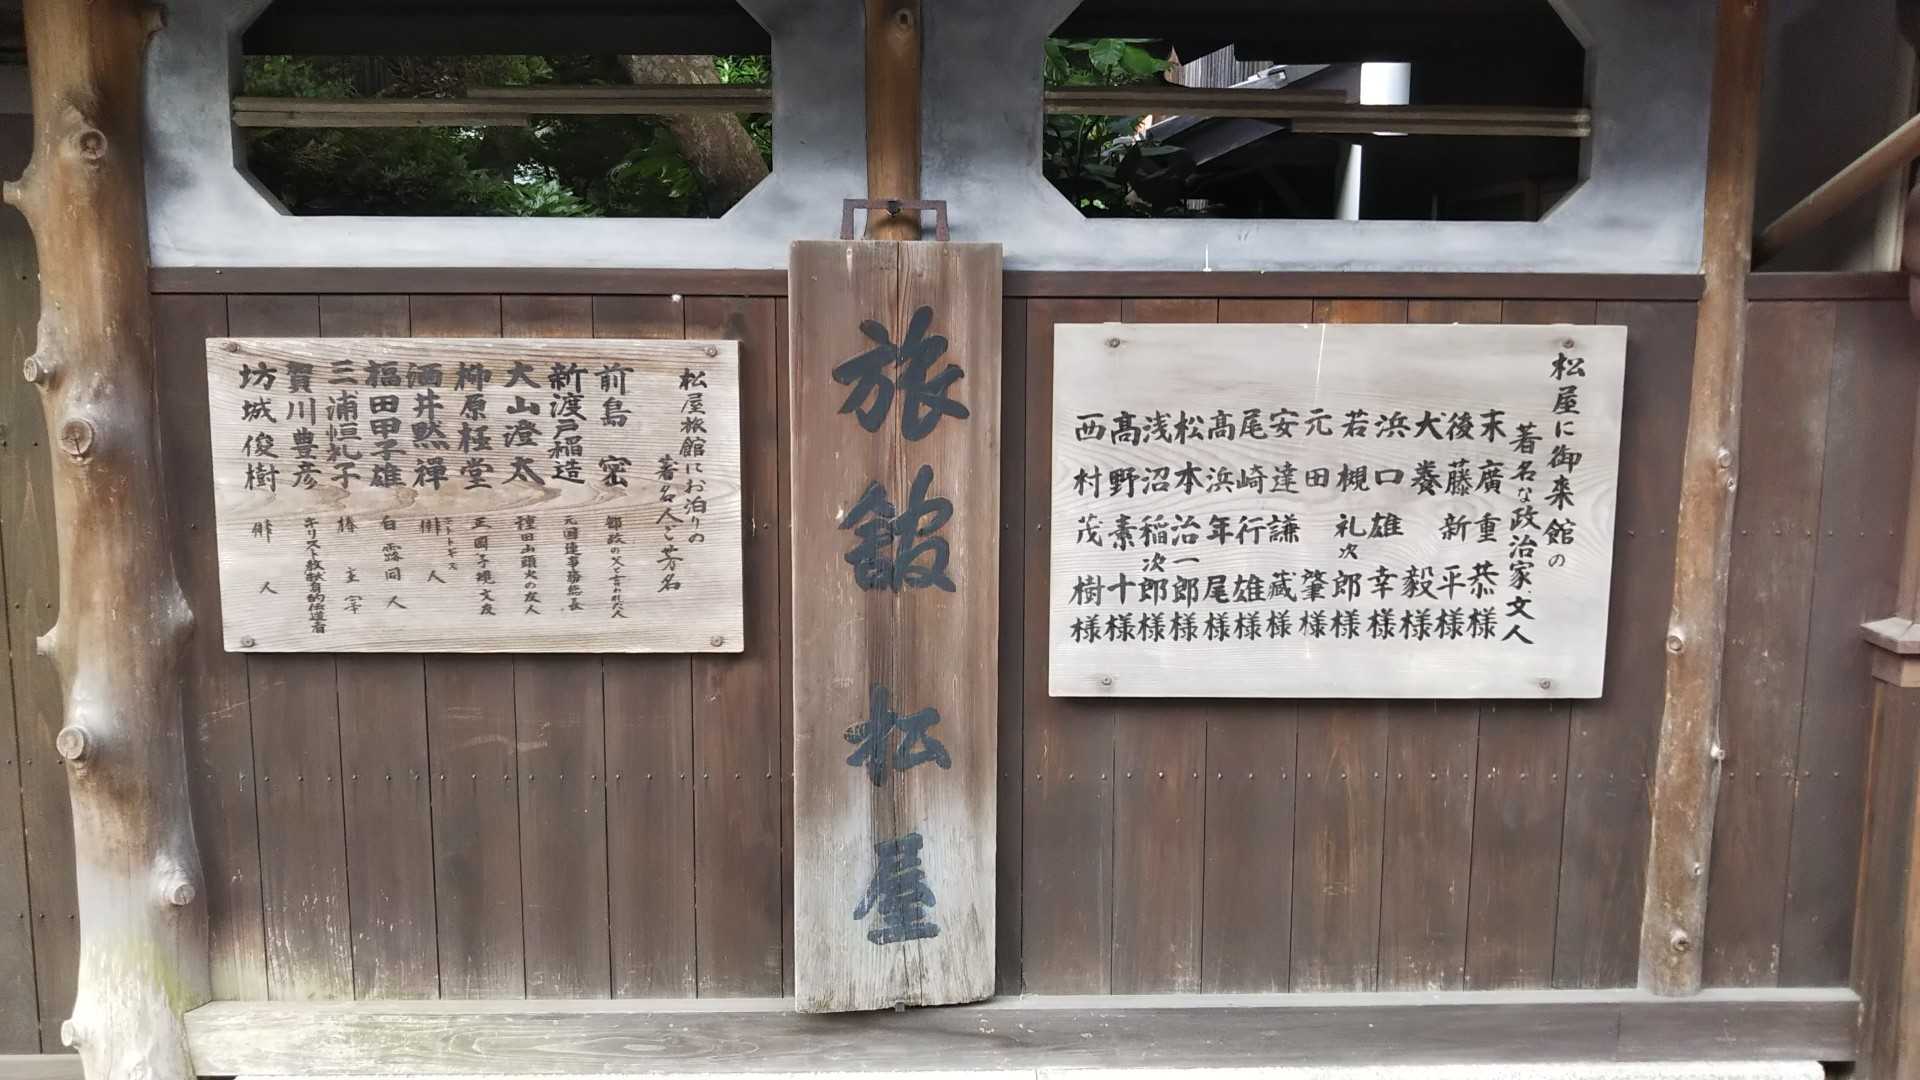 松屋に御来館の
著名な政治家、文人
末廣重恭様
後藤新平様
犬養毅様
浜口雄幸様
若槻礼次郎様
元田肇様
安達謙蔵様
尾崎行雄様
高浜年尾様
松本治一郎様
浅沼稲次郎様
髙野素十様
西村茂樹様
旅館松屋
松屋旅館にお泊りの
著名人と芳名
前島密 郵政の父と言われた人
新渡戸稲造 元国連事務総長
大山澄太 種田山頭火の友人
柳原極堂 正岡子規文友
酒井黙禅 ホトトギス俳人
福田甲子雄 白露同人
三浦恒礼子 椿主宰
賀川豊彦 キリスト教献身的伝道者
坊城俊樹 俳人